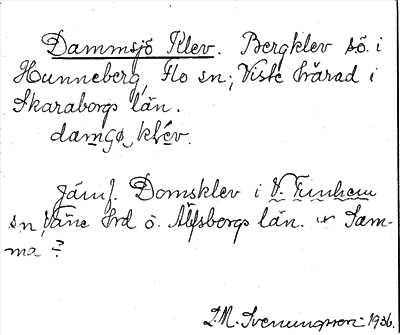 Dammsjö Klev. Bergklev sö. i
Hunneberg, Flo sn; Viste härad i
Skaraborgs län.
damʃø klev.
Jämf. Domsklev i V. Tunhem
sn, Väne hrd o. Älfsborgs län. Sam-
ma?
D.M. Svenungsson 1936.